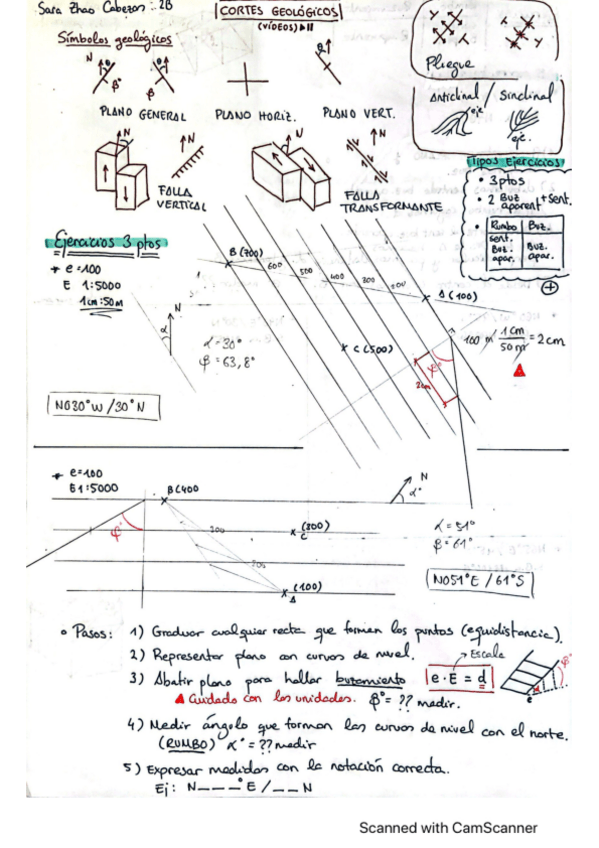 Sara Zhao Cabezon :. 2B
CORTES GEOLÓGICOS
(VÍDEOS)
Símbolos geológicos
N
β°
β
PLANO GENERAL
PLANO HORIZ.
PLANO VERT.
Pliegue
Anticlinal / Sinclinal
eje
eje.
N
FALLA
VERTICAL
N
N
FALLA
TRANSFORMANTE
Tipos Ejercicios
• 3 ptos
• 2 Buz aparent + Sent.
Rumbo Buz.
Sent.
Buz.
apar.
Buz.
apar.
Ejercicios 3 ptos
e=100
E 1:5000
1cm:50m
N
α
α=30°
β=63,8°
B (700)
600
500
400
300
200
A (100)
C (500)
2cm
100 m 1cm/50m = 2cm
N030°W/30°N
e=100
E 1:5000
B (400
300
(300)
C
200
(100)
A
φ°
N
α°
α=51°
β=61°
N051°E/61°S
• Pasos: 1) Graduar cualquier recta que forman los puntos (equidistancia).
2) Representar plano con curvas de nivel.
3) Abatir plano para hallar buzamiento
Cuidado con las unidades. β°= ?? medir.
Escala
e·E = d
e
4) Medir ángulo que forman las curvas de nivel con el norte.
(RUMBO) α°=?? medir
5) Expresar medidas con la notación correcta.
Ej: N___°E/__N
Scanned with CamScanner